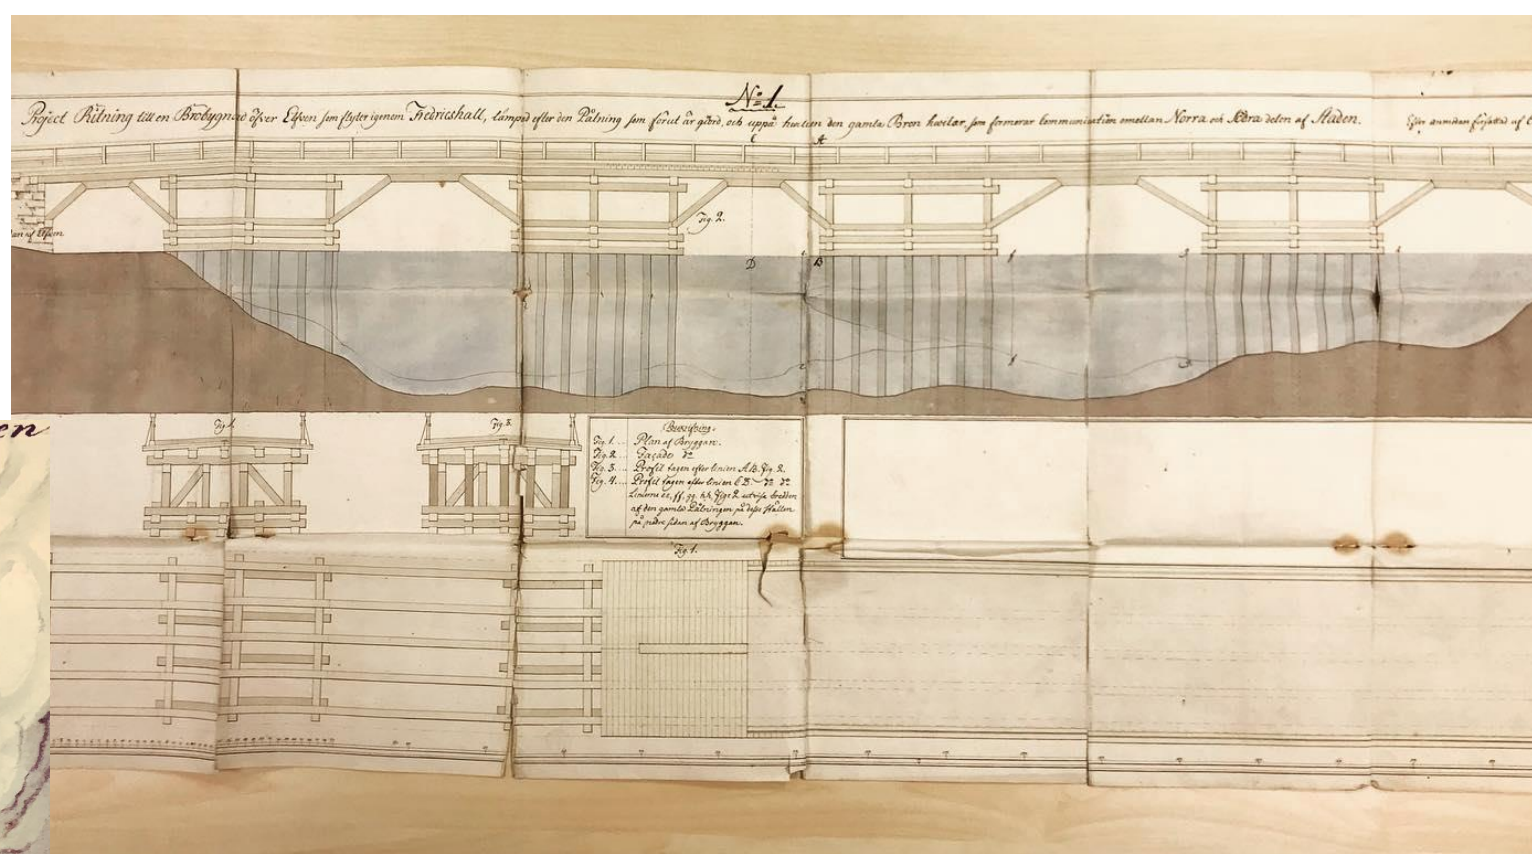 No 1.
Project Ritning till en Brobygnad öfver Elfven som flyter igenom Fredricshall, lämpad efter den Pålning som förut är giord, och uppå hvilken den gamla Bron hvilar, som formerar communication emellan Norra och Södra delen af Staden.
C
A
Fig. 2.
af Elfven
D
B
Fig. 4.
Fig. 3.
Beskrifning.
Fig. 1. .... Plan af Bryggan.
Fig. 2. .... Façade do
Fig. 3. .... Profil tagen efter linien A.B. Fig. 2.
Fig. 4. .... Profil tagen efter linien C D. do do
Linierne ee, ff, gg, hh, Fig. 2 utvisa bredden
af den gamla Pålningen på desse Ställen
på nedre sidan af Bryggan.
Fig. 1.
en